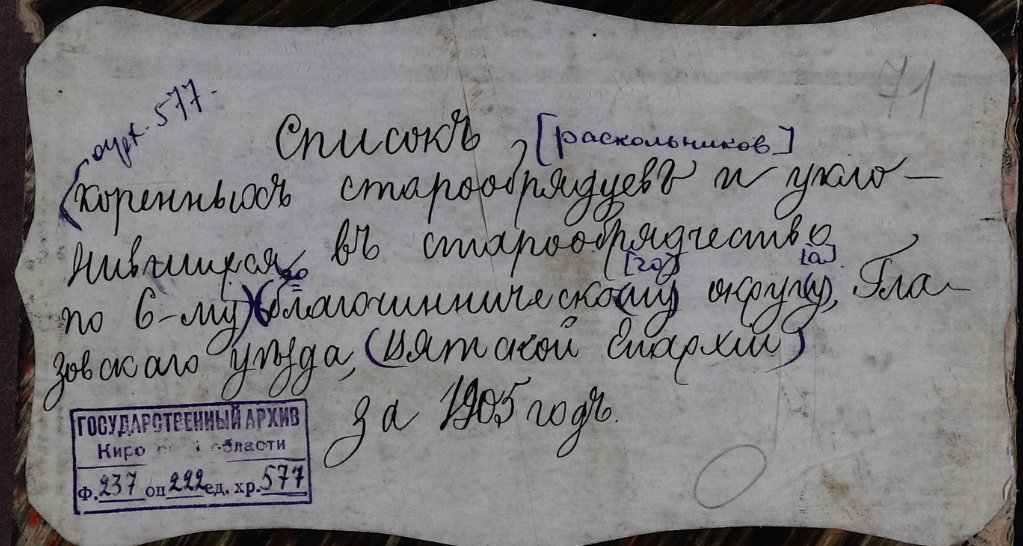 71
оцрх. 577.
Списокъ [раскольников]
(коренныхъ старообрядцевъ и укло-
нившихся въ старообрядчество
го [го] [а]
по 6-му) (благочинническо(му) округ(у), Гла-
зовскаго уѣзда, (Вятской Епархіи)
за 1905 годъ.
ГОСУДАРСТВЕННЫЙ АРХИВ
Киро й области
Ф. 237 оп 222 ед. хр. 577